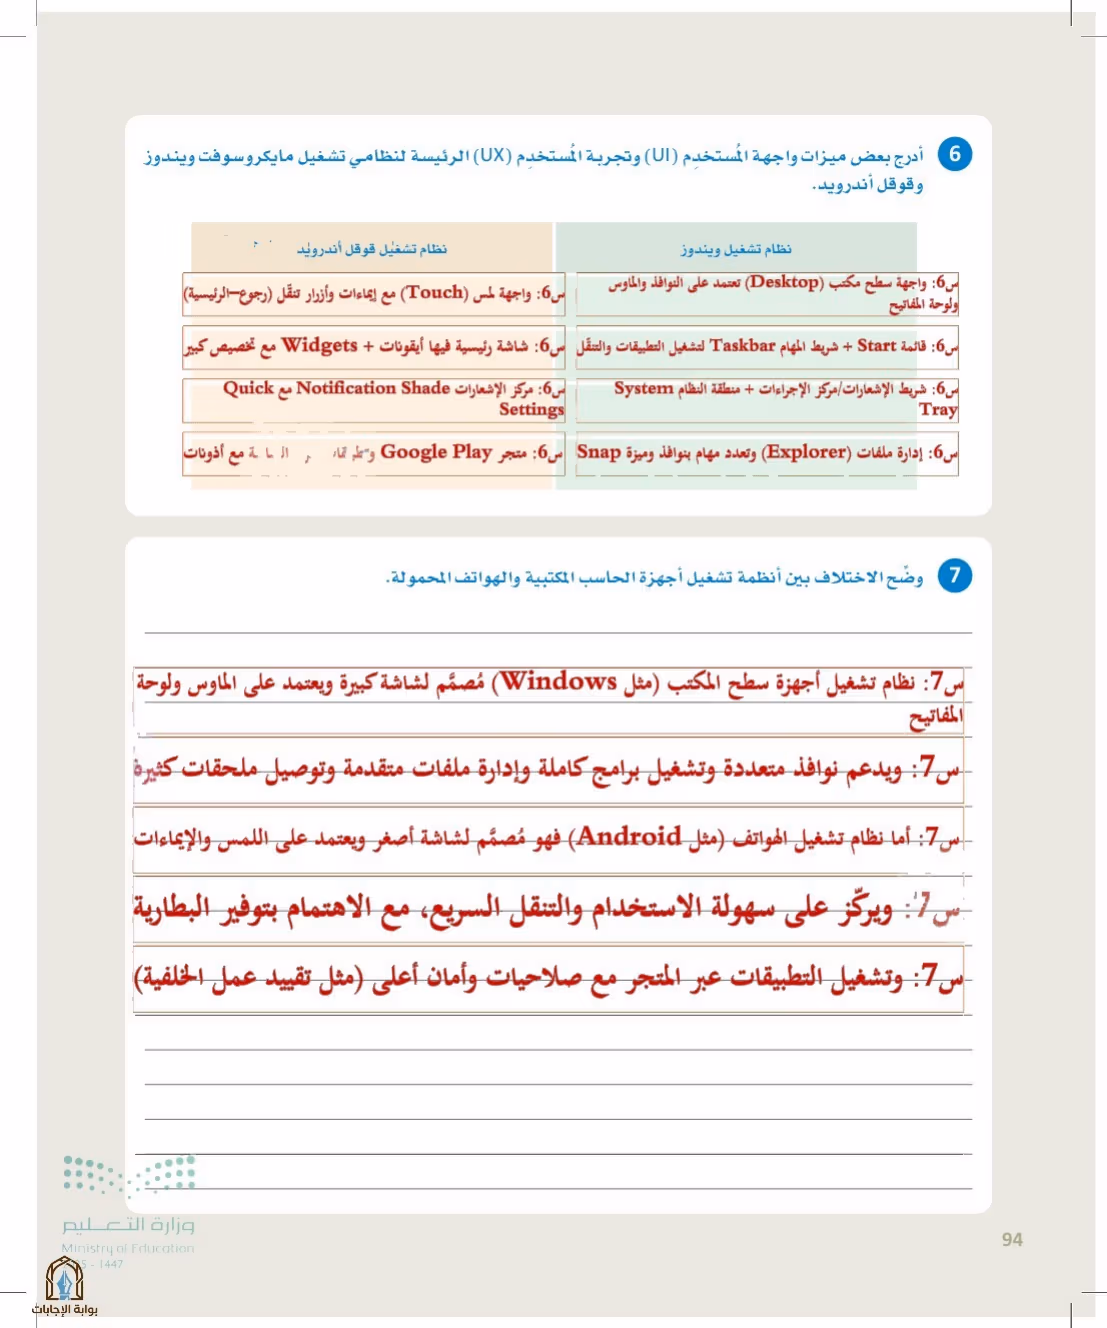 6 أدرج بعض ميزات واجهة المُستخدِم (UI) وتجربة المُستخدِم (UX) الرئيسة لنظامي تشغيل مايكروسوفت ويندوز
وقوقل أندرويد.
نظام تشغيل ويندوز
نظام تشغيل قوقل أندرويد
س6: واجهة سطح مكتب (Desktop) تعتمد على النوافذ والماوس
ولوحة المفاتيح
س6: واجهة لمس (Touch) مع إيماءات وأزرار تنقّل (رجوع–الرئيسية)
س6: قائمة Start + شريط المهام Taskbar لتشغيل التطبيقات والتنقّل
س6: شاشة رئيسية فيها أيقونات + Widgets مع تخصيص كبير
س6: شريط الإشعارات/مركز الإجراءات + منطقة النظام System
Tray
س6: مركز الإشعارات Notification Shade مع Quick
Settings
س6: إدارة ملفات (Explorer) وتعدد مهام بنوافذ وميزة Snap
س6: متجر Google Play مع أذونات
7 وضّح الاختلاف بين أنظمة تشغيل أجهزة الحاسب المكتبية والهواتف المحمولة.
س7: نظام تشغيل أجهزة سطح المكتب (مثل Windows) مُصمَّم لشاشة كبيرة ويعتمد على الماوس ولوحة
المفاتيح
س7: ويدعم نوافذ متعددة وتشغيل برامج كاملة وإدارة ملفات متقدمة وتوصيل ملحقات كثيرة
س7: أما نظام تشغيل الهواتف (مثل Android) فهو مُصمَّم لشاشة أصغر ويعتمد على اللمس والإيماءات
س7: ويركّز على سهولة الاستخدام والتنقل السريع، مع الاهتمام بتوفير البطارية
س7: وتشغيل التطبيقات عبر المتجر مع صلاحيات وأمان أعلى (مثل تقييد عمل الخلفية)
وزارة التعليم
Ministry of Education
- 1447
94
بوابة الإجابات